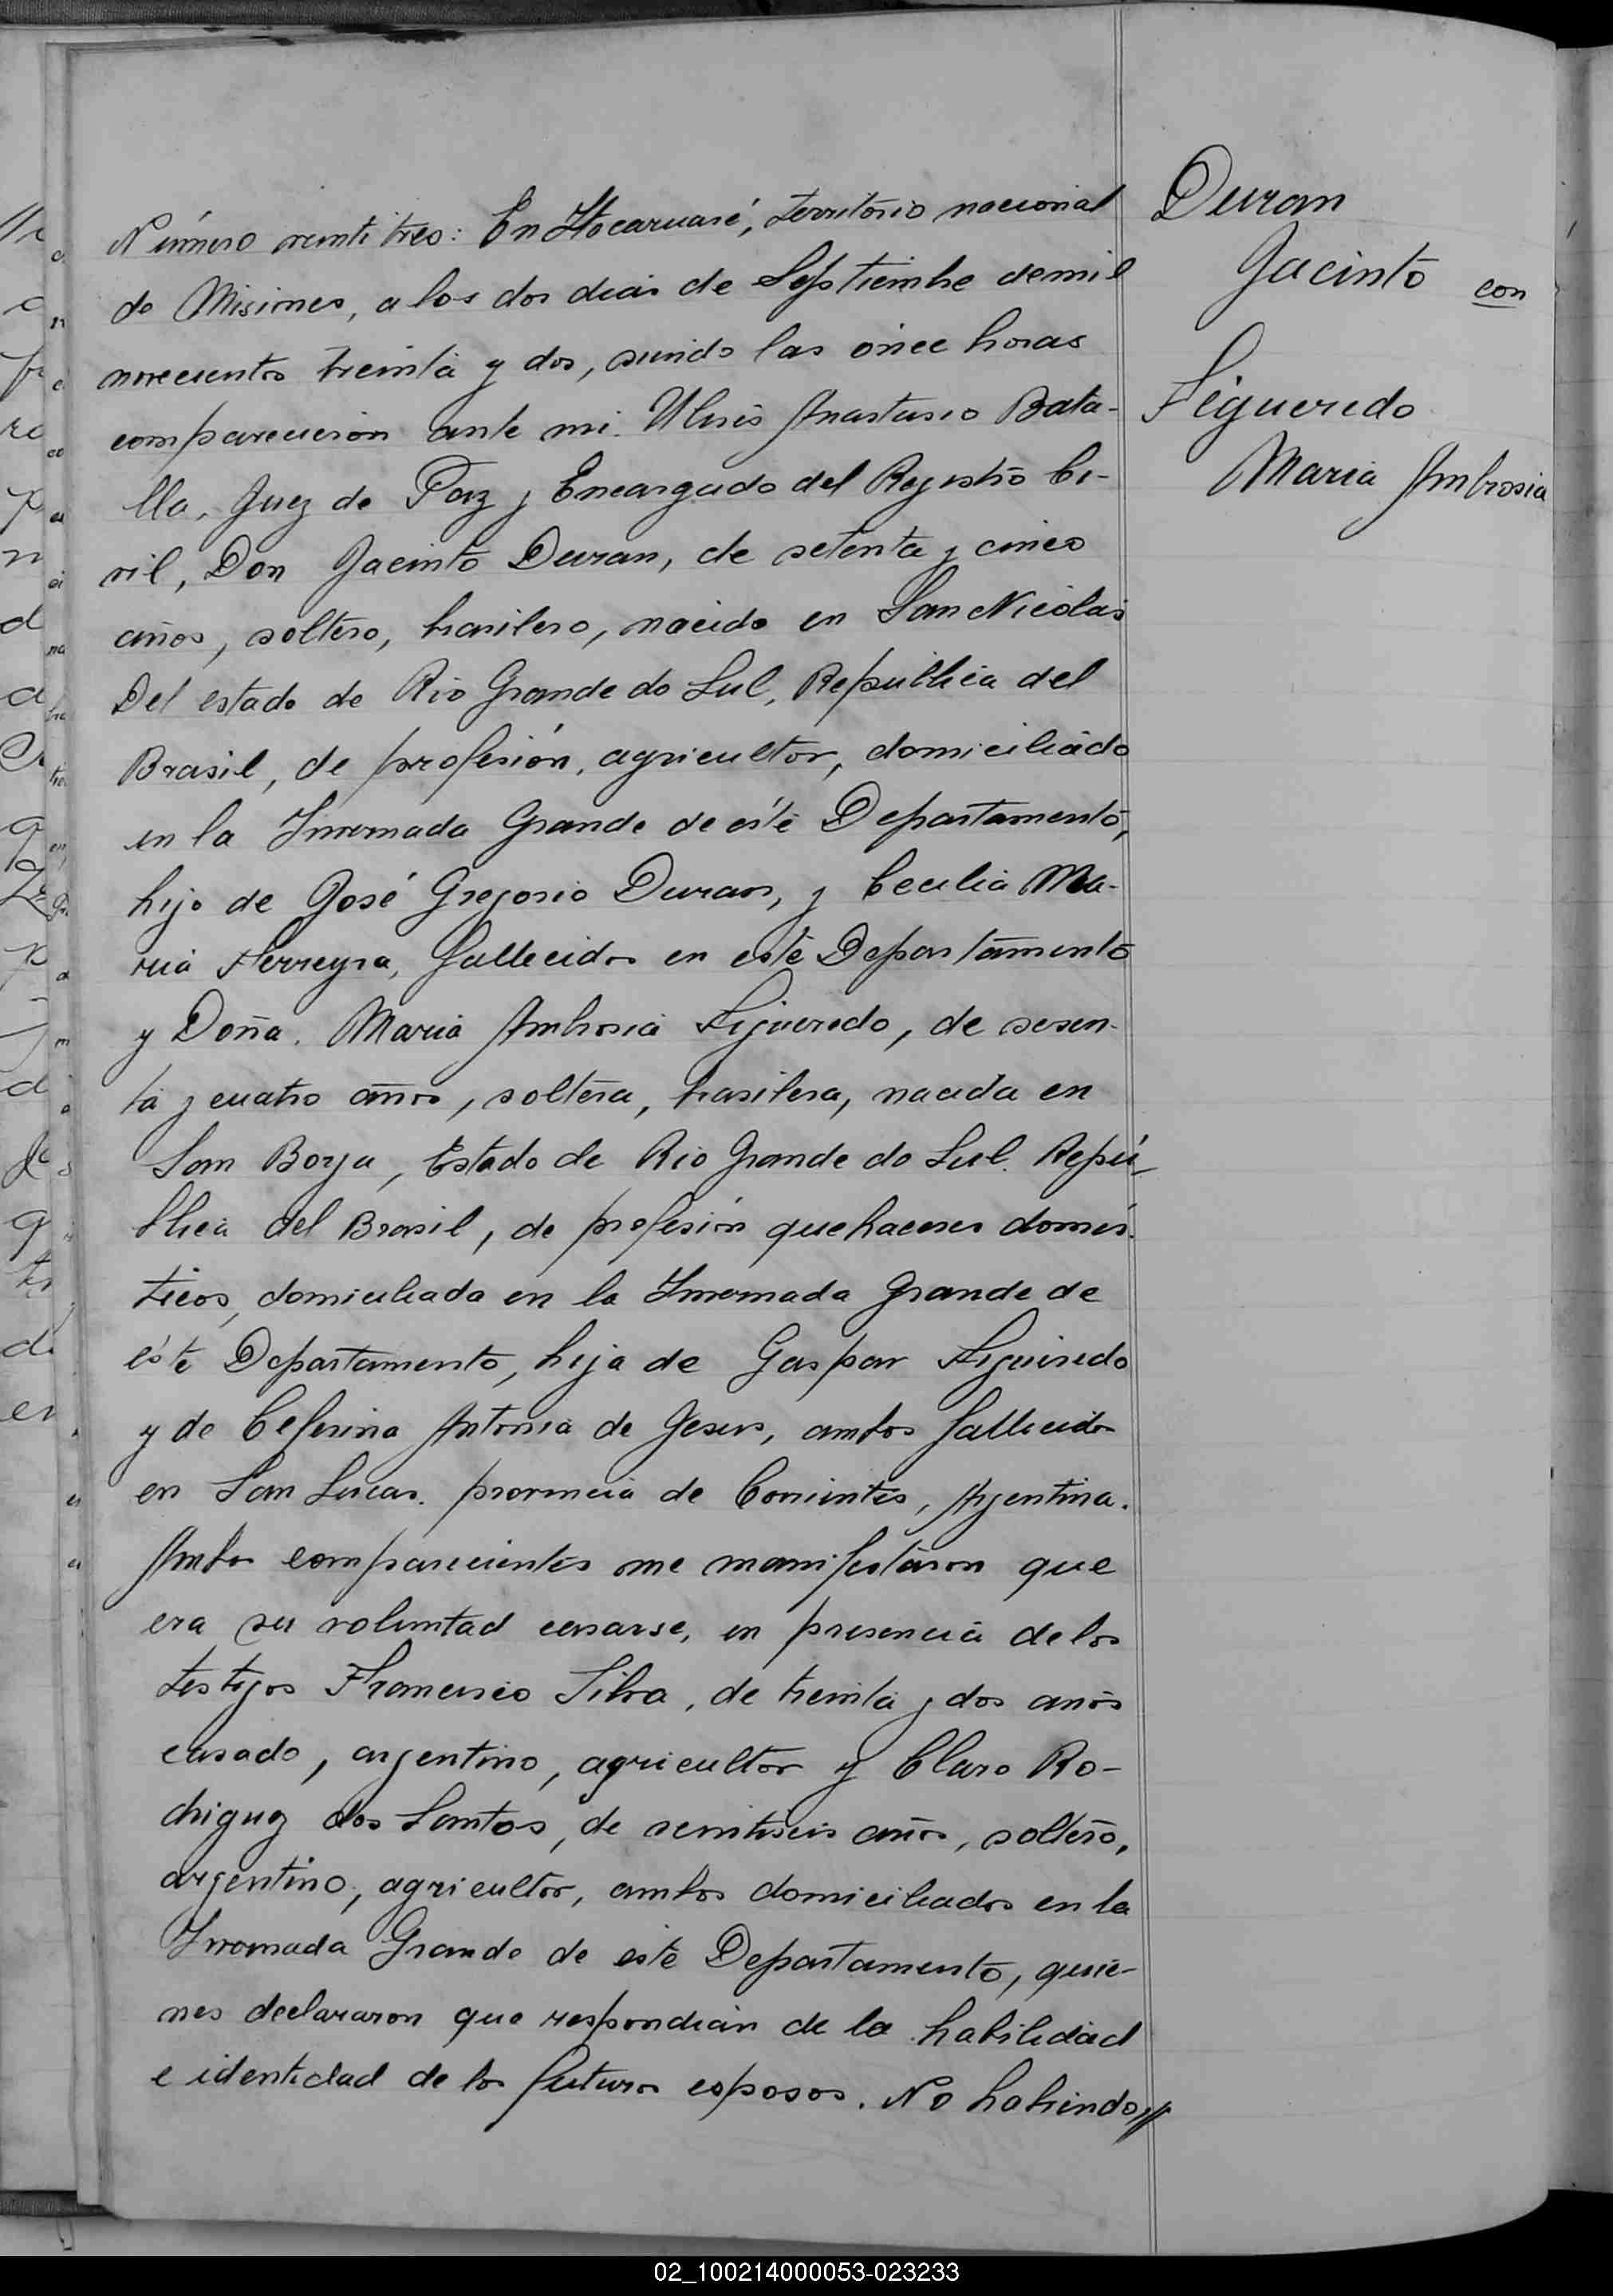 Número veintitres: En Itacaruaré, territorio nacional
de Misiones, a los dos dias de Septiembre de mil
novecientos treinta y dos, siendo las once horas
comparecieron ante mi. Ulises Anastasio Bata-
lla, Juez de Paz y Encargado del Registro Ci-
vil, Don Jacinto Duran, de setenta y cinco
años, soltero, brasilero, nacido en San Nicolas
Del estado de Rio Grande do Sul, República del
Brasil, de profesión, agricultor, domiciliado
en la Invernada Grande de éste Departamento,
hijo de José Gregorio Duran, y Cecilia Ma-
ria Ferreyra, fallecidos en este Departamento
y Doña. Maria Ambrosia Figueredo, de sesen-
ta y cuatro años, soltera, brasilera, nacida en
San Borja, Estado de Rio Grande do Sul. Repú-
blica del Brasil, de profesión quehaceres domés-
ticos, domiciliada en la Invernada Grande de
éste Departamento, hija de Gaspar Figueredo
y de Ceferina Antonia de Jesus, ambos fallecidos
en San Lucas. provincia de Corrientes, Argentina.
Ambos comparecientes me manifestaron que
era su voluntad casarse, en presencia de los
testigos Francisco Silva, de treinta y dos años
casado, argentino, agricultor y Claro Ro-
driguez dos Santos, de veintiseis años, soltero,
argentino, agricultor, ambos domiciliados en la
Invernada Grande de este Departamento, quie-
nes declararon que respondian de la habilidad
e identidad de los futuros esposos. No habiendo//
Duran
Jacinto con
Figueredo
Maria Ambrosia
02_100214000053-023233